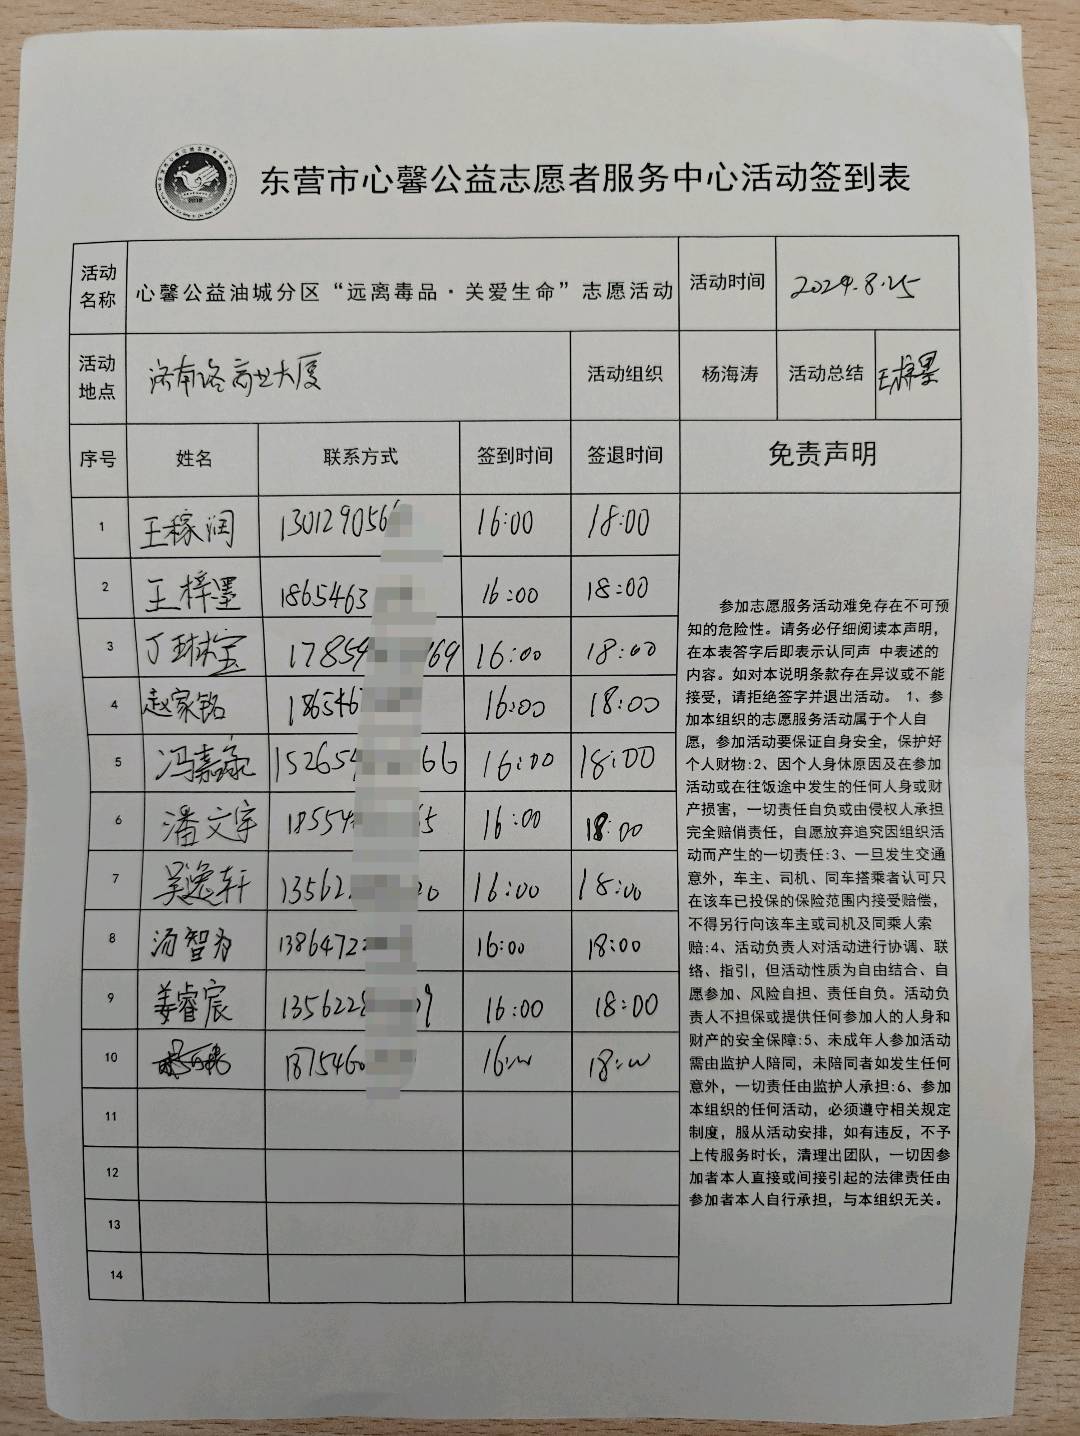 东营市心馨公益志愿者服务中心活动签到表
活动名称 心馨公益油城分区“远离毒品·关爱生命”志愿活动 活动时间 2024.8.25
活动地点 济南路商业大厦 活动组织 杨海涛 活动总结 王梓墨
序号 姓名 联系方式 签到时间 签退时间 免责声明
1 王稼润 130129056 16:00 18:00
2 王梓墨 1865463 16:00 18:00
3 丁琳宝 17854 69 16:00 18:00
4 赵家铭 186546 16:00 18:00
5 冯嘉承 152654 66 16:00 18:00
6 潘文宇 18554 5 16:00 18:00
7 吴逸轩 13562 0 16:00 18:00
8 汤智为 1386472 16:00 18:00
9 姜睿宸 1356228 9 16:00 18:00
10 1875460 16:00 18:00
11
12
13
14
参加志愿服务活动难免存在不可预
知的危险性。请务必仔细阅读本声明，
在本表签字后即表示认同声 中表述的
内容。如对本说明条款存在异议或不能
接受，请拒绝签字并退出活动。 1、参
加本组织的志愿服务活动属于个人自
愿，参加活动要保证自身安全，保护好
个人财物:2、因个人身休原因及在参加
活动或在往饭途中发生的任何人身或财
产损害，一切责任自负或由侵权人承担
完全赔俏责任，自愿放弃追究因组织活
动而产生的一切责任:3、一旦发生交通
意外，车主、司机、同车搭乘者认可只
在该车已投保的保险范围内接受赔偿，
不得另行向该车主或司机及同乘人索
赔:4、活动负责人对活动进行协调、联
络、指引，但活动性质为自由结合、自
愿参加、风险自担、责任自负。活动负
责人不担保或提供任何参加人的人身和
财产的安全保障:5、未成年人参加活动
需由监护人陪同，未陪同者如发生任何
意外，一切责任由监护人承担:6、参加
本组织的任何活动，必须遵守相关规定
制度，服从活动安排，如有违反，不予
上传服务时长，清理出团队，一切因参
加者本人直接或间接引起的法律责任由
参加者本人自行承担，与本组织无关。